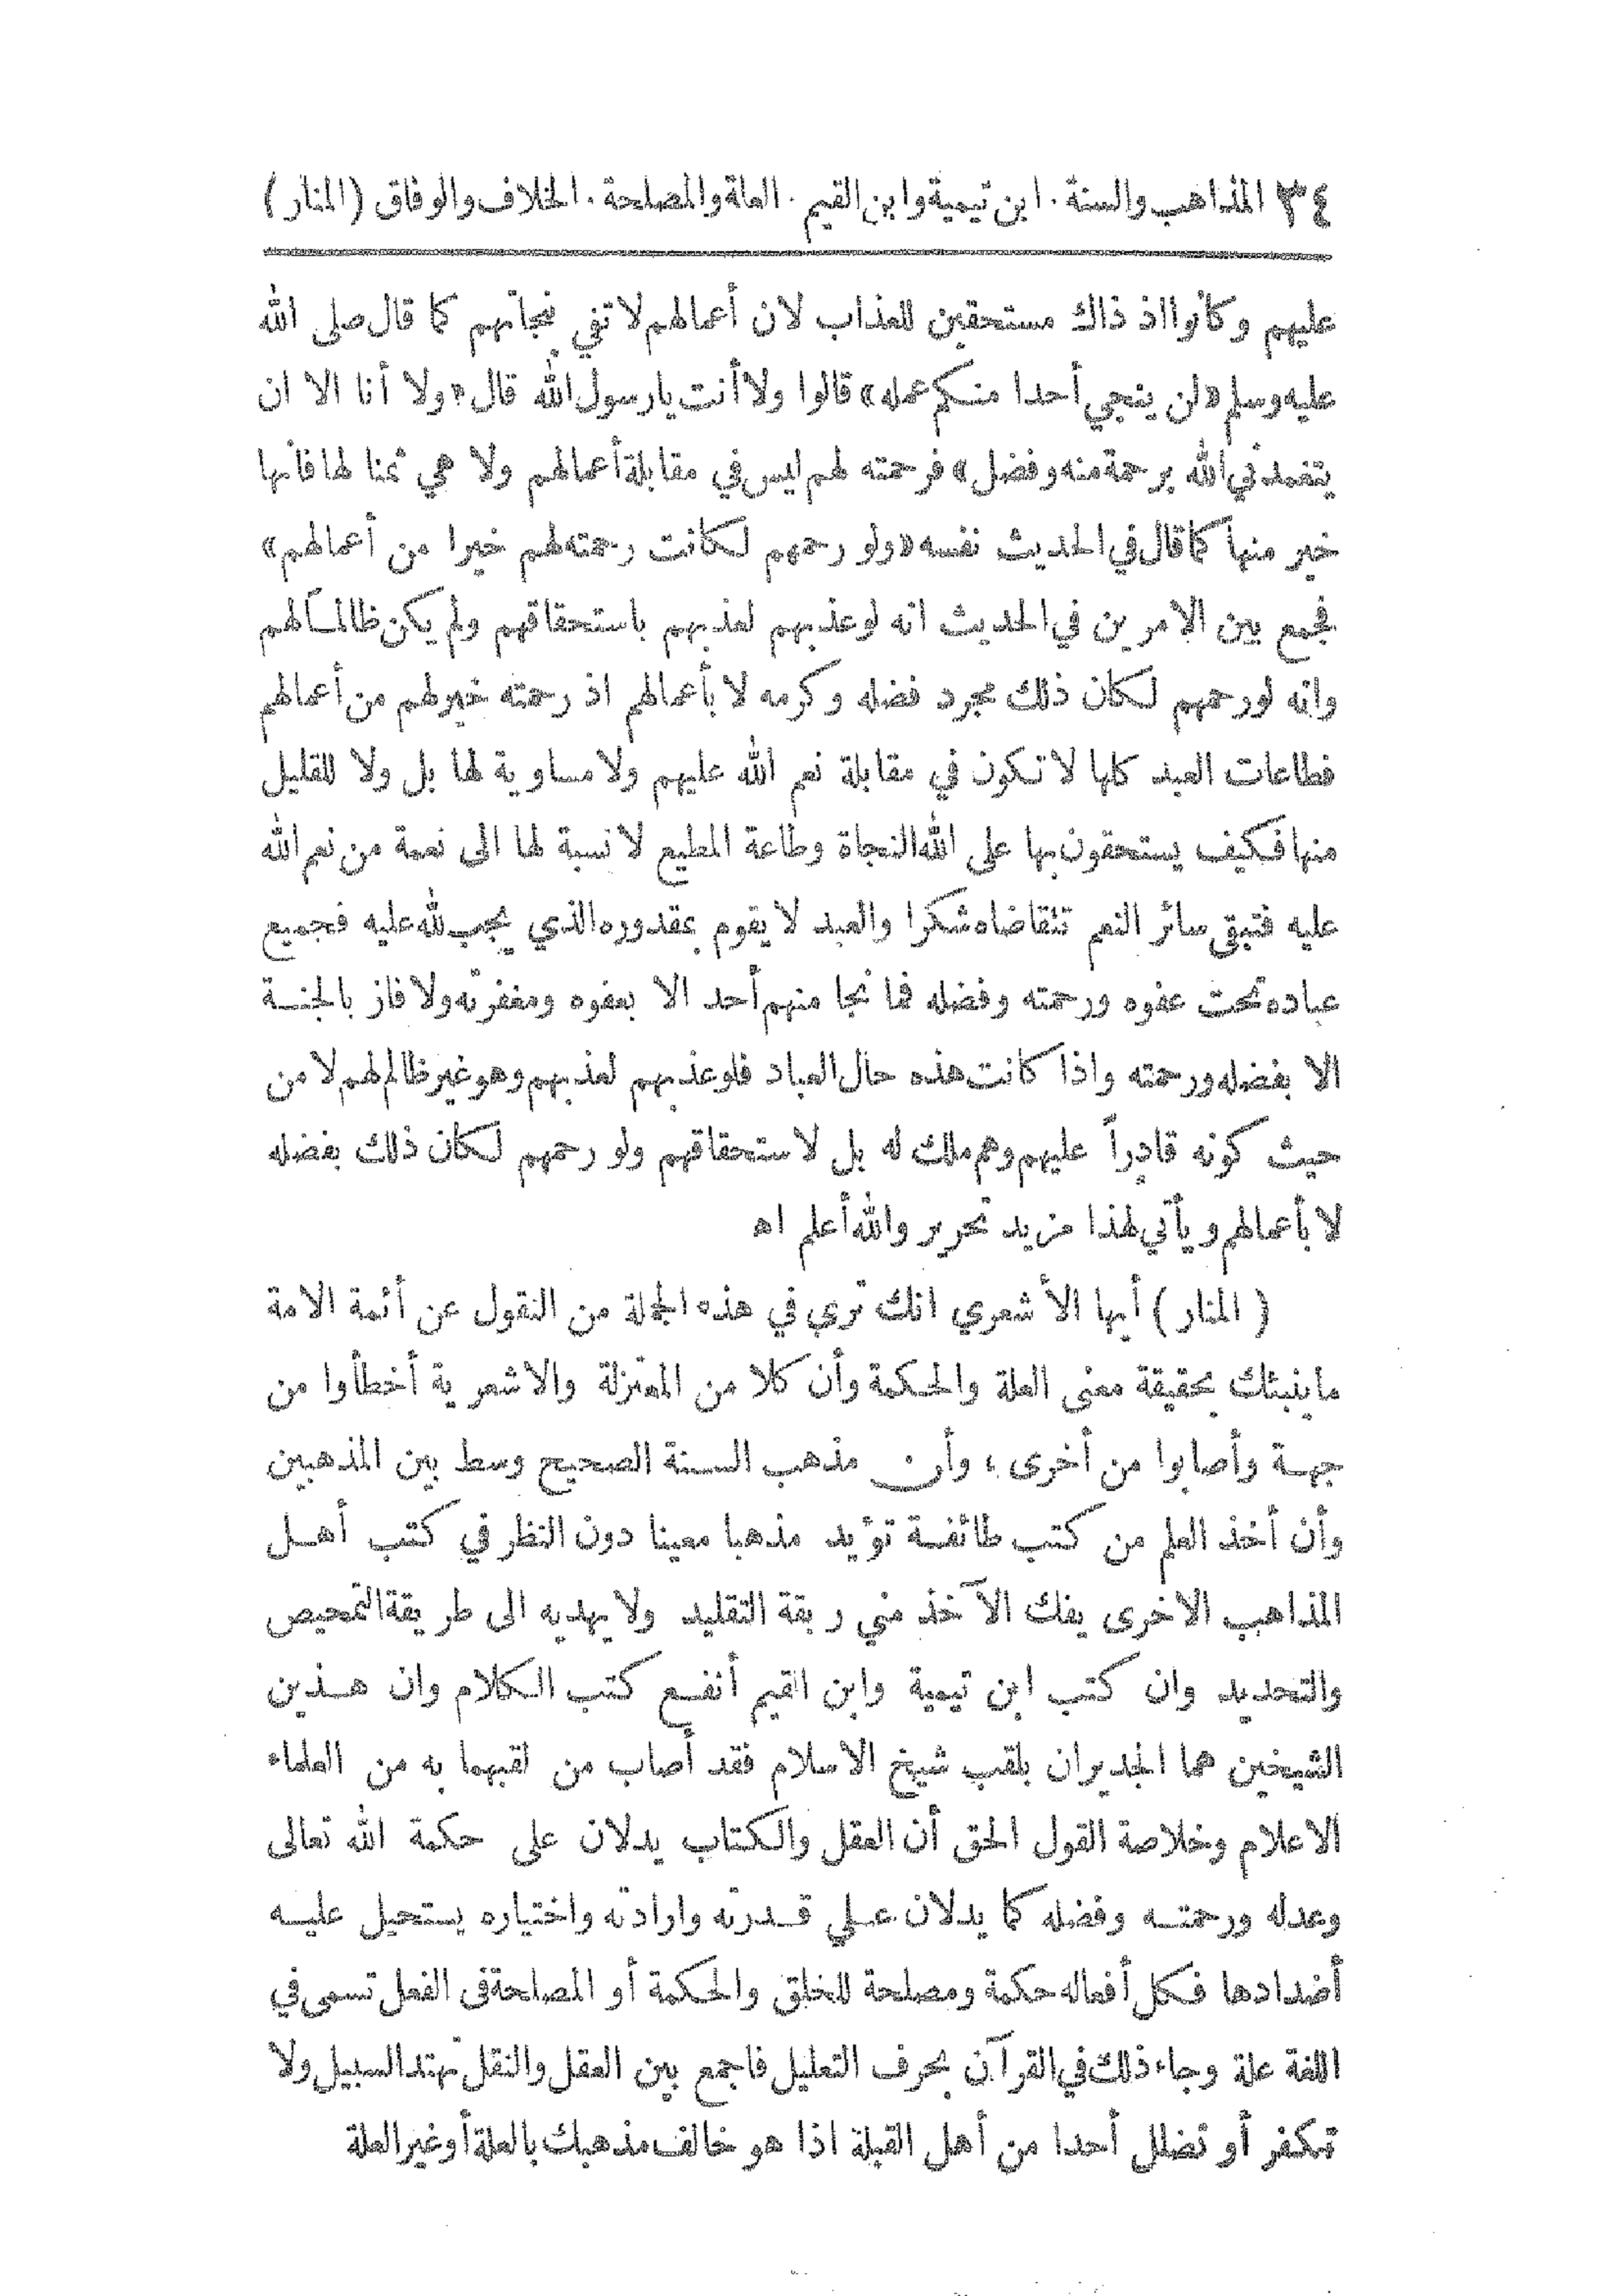 ٣٤ المذاهب والسنة . ابن تيمية وابن القيم . العلة والمصلحة . الخلاف والوفاق (المنار)
عليهم وكانوا اذ ذاك مستحقين للعذاب لان أعمالهم لا تفي بنجاتهم كما قال صلى الله
عليه وسلم «لن ينجي أحدا منكم عمله» قالوا ولا أنت يا رسول الله قال «ولا أنا الا ان
يتغمدني الله برحمة منه وفضل» فرحمته لهم ليس في مقابلة أعمالهم ولا هي ثمنا لها فانها
خير منها كما قال في الحديث نفسه «ولو رحمهم لكانت رحمته لهم خيرا من أعمالهم»
فجمع بين الامرين في الحديث انه لو عذبهم لعذبهم باستحقاقهم ولم يكن ظالما لهم
وانه لو رحمهم لكان ذلك مجرد فضله وكرمه لا بأعمالهم اذ رحمته خير لهم من أعمالهم
فطاعات العبد كلها لا تكون في مقابلة نعم الله عليهم ولا مساوية لها بل ولا للقليل
منها فكيف يستحقون بها على الله النجاة وطاعة المطيع لا نسبة لها الى نعمة من نعم الله
عليه فتبقى سائر النعم تتقاضاه شكرا والعبد لا يقوم بمقدوره الذي يجب لله عليه فجميع
عباده تحت عفوه ورحمته وفضله فما نجا منهم أحد الا بعفوه ومغفرته ولا فاز بالجنة
الا بفضله ورحمته واذا كانت هذه حال العباد فلو عذبهم لعذبهم وهو غير ظالم لهم لا من
حيث كونه قادراً عليهم وهم ملك له بل لاستحقاقهم ولو رحمهم لكان ذلك بفضله
لا بأعمالهم ويأتي لهذا مزيد تحرير والله أعلم اه
( المنار ) أيها الأشعري انك ترى في هذه الجملة من النقول عن أئمة الامة
ما ينبئك بحقيقة معنى العلة والحكمة وأن كلا من المعتزلة والاشعرية أخطأوا من
جهة وأصابوا من أخرى ، وأن مذهب السنة الصحيح وسط بين المذهبين
وأن أخذ العلم من كتب طائفة تؤيد مذهبا معينا دون النظر في كتب أهل
المذاهب الاخرى يفك الآخذ مني ربقة التقليد ولا يهديه الى طريقة التمحيص
والتحديد وان كتب ابن تيمية وابن القيم أنفع كتب الكلام وان هذين
الشيخين هما الجديران بلقب شيخ الاسلام فقد أصاب من لقبهما به من العلماء
الاعلام وخلاصة القول الحق أن العقل والكتاب يدلان على حكمة الله تعالى
وعدله ورحمته وفضله كما يدلان على قدرته وارادته واختياره يستحيل عليه
أضدادها فكل أفعاله حكمة ومصلحة للخلق والحكمة أو المصلحة في الفعل تسمى في
اللغة علة وجاء ذلك في القرآن بحرف التعليل فاجمع بين العقل والنقل تهتد السبيل ولا
تكفر أو تضلل أحدا من أهل القبلة اذا هو خالف مذهبك بالعلة أو غير العلة